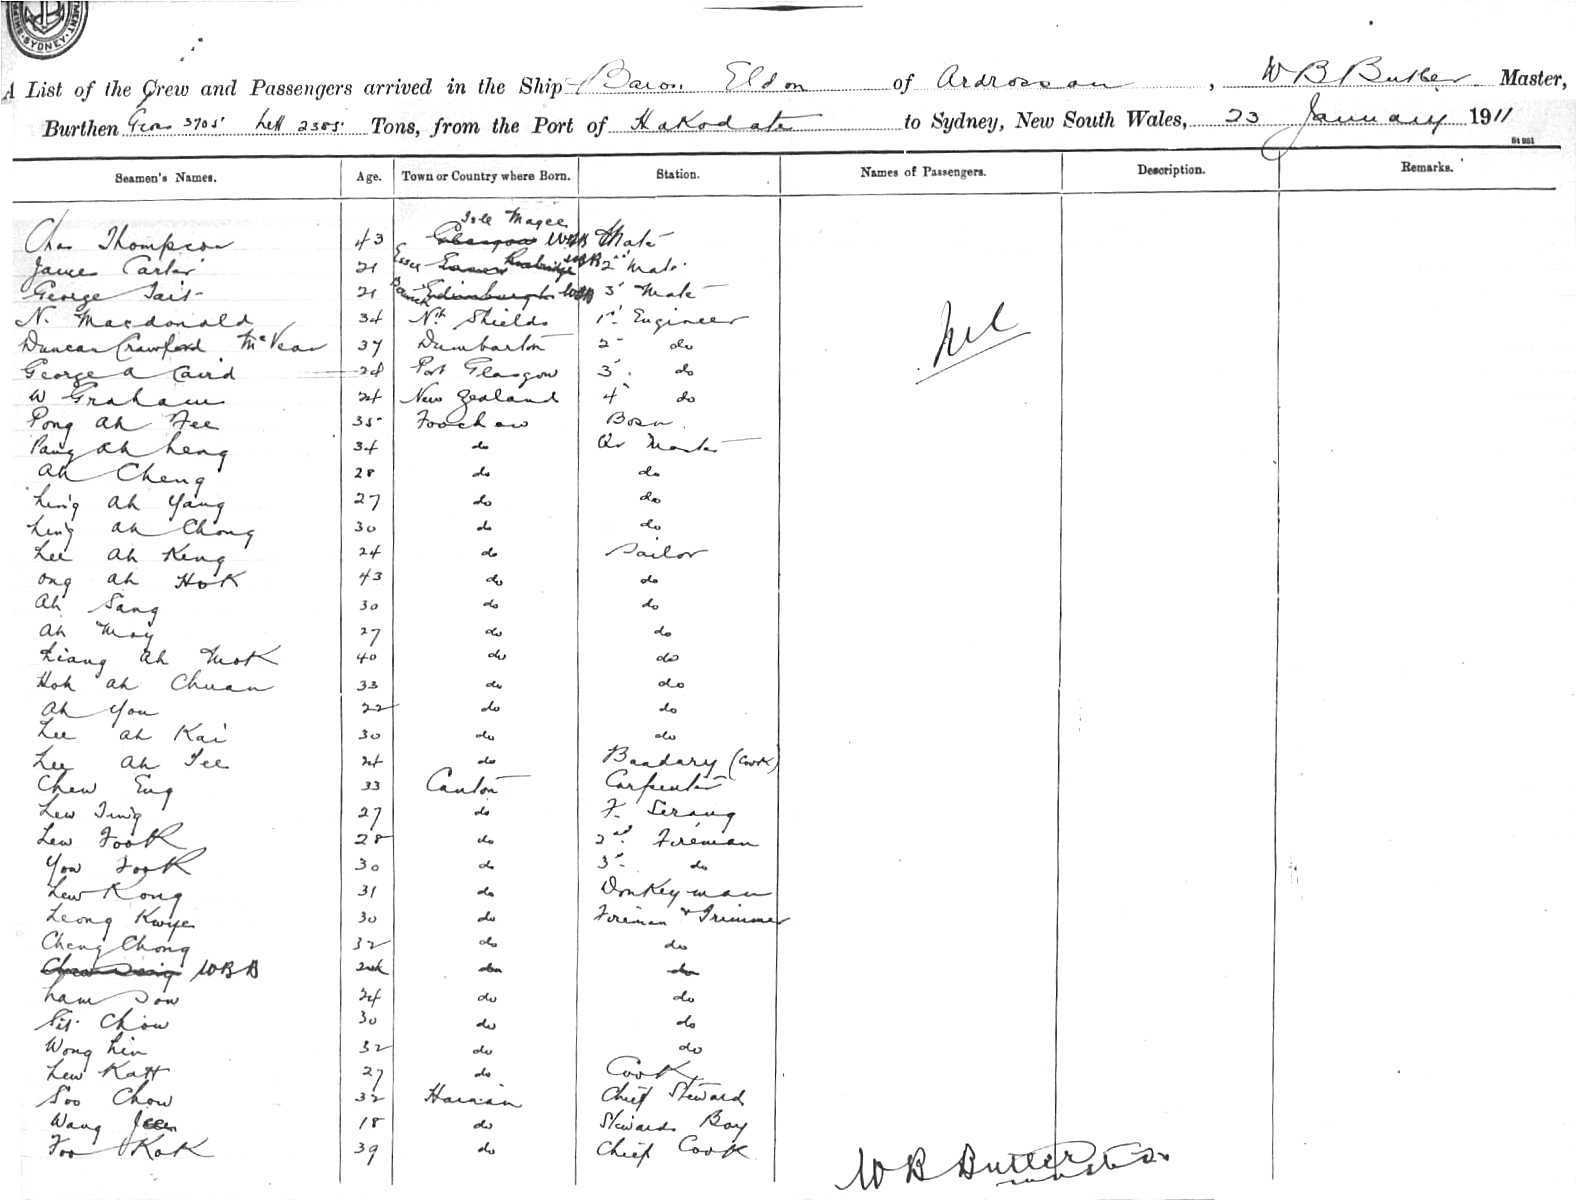 SYDNEY
A List of the Crew and Passengers arrived in the Ship Baron Eldon of Ardrossan, W B Butler Master,
Burthen Gros 3705 Nett 2385 Tons, from the Port of Hakodate to Sydney, New South Wales, 23 January 1911
Seamen's Names. Age. Town or Country where Born. Station. Names of Passengers. Description. Remarks.
Isle Magee
Chas Thompson 43 Glasgow WBB Mate
James Carter 21 Essex WBB 2nd Mate
George Tait 21 Edinburgh WBB 3 Mate
N. Macdonald 34 Nth Shields 1st Engineer
Duncan Crawford McVean 37 Dumbarton 2 do
George A Caird 28 Port Glasgow 3 do
W Graham 24 New Zealand 4 do
Nil
Pong Ah Fee 35 Foochow Bosn
Pang Ah Leng 34 do Qr Master
Ah Cheng 28 do do
Ling Ah Yang 27 do do
Ling Ah Chong 30 do do
Lee Ah Keng 24 do Sailor
Ong Ah Hok 43 do do
Ah Sang 30 do do
Ah May 27 do do
Liang Ah Mok 40 do do
Hoh Ah Chuan 33 do do
Ah You 22 do do
Lee Ah Kai 30 do do
Lee Ah Tee 24 do Bandary (Cook)
Chew Eng 33 Canton Carpenter
Lew Ting 27 do F. Serang
Lew Fook 28 do 2nd Fireman
Yow Fook 30 do 3 do
Lew Kong 31 do Donkeyman
Leong Kwye 30 do Fireman & Trimmer
Cheng Chong 32 do do
WBB do do
Lam Sow 24 do do
Chow 30 do do
Wong Lin 32 do do
Lew Katt 27 do Cook
Soo Chow 32 Hainan Chief Steward
Wang 18 do Stewards Boy
Foo Kok 39 do Chief Cook
W B Butler
Master